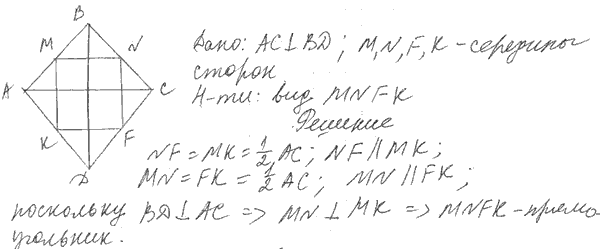 B
M
N
A
C
K
F
D
Дано: AC⊥BD; M,N,F,K - середины
сторон
Н-ти: вид MNFK
Решение
NF = MK = 1/2 AC; NF∥MK;
MN = FK = 1/2 AC; MN∥FK;
поскольку BD⊥AC => MN⊥MK => MNFK - прямо
угольник.